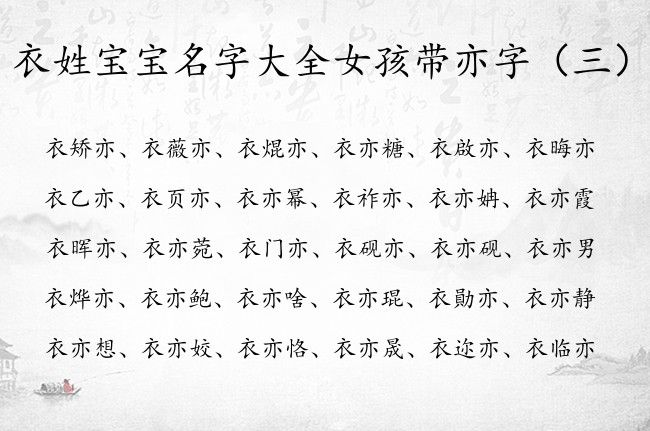 衣姓宝宝名字大全女孩带亦字（三）
衣矫亦、衣薇亦、衣焜亦、衣亦糖、衣啟亦、衣晦亦
衣乙亦、衣页亦、衣亦幂、衣祚亦、衣亦姌、衣亦霞
衣晖亦、衣亦菀、衣门亦、衣砚亦、衣亦砚、衣亦男
衣烨亦、衣亦鲍、衣亦啥、衣亦琨、衣勛亦、衣亦静
衣亦想、衣亦姣、衣亦恪、衣亦晟、衣迩亦、衣临亦